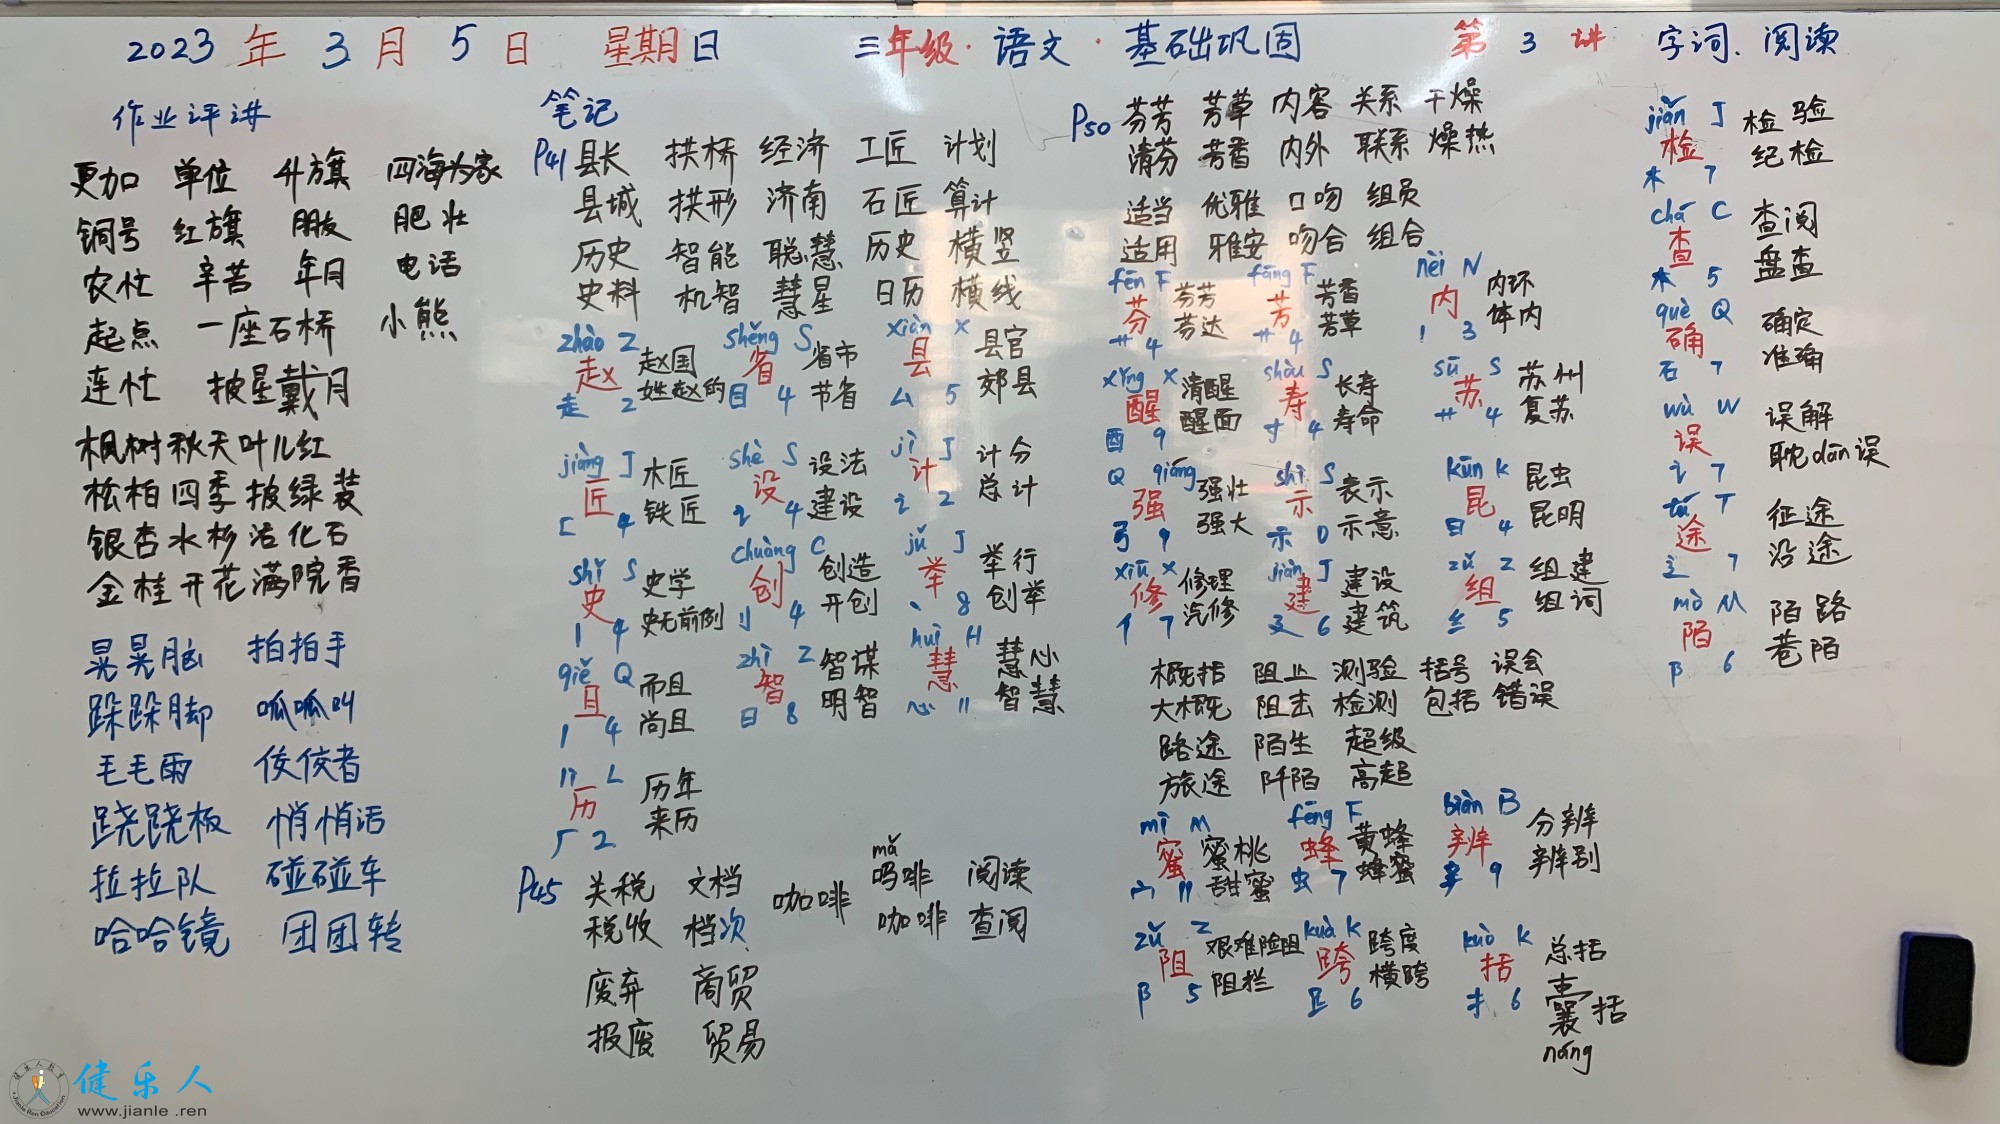 2023年3月5日 星期日 三年级·语文·基础巩固 第3讲 字词、阅读
作业评讲
更加 单位 升旗 四海为家
铜号 红旗 朋友 肥壮
农忙 辛苦 年日 电话
起点 一座石桥 小熊
连忙 披星戴月
枫树秋天叶儿红
松柏四季披绿装
银杏水杉活化石
金桂开花满院香
晃晃脑 拍拍手
跺跺脚 呱呱叫
毛毛雨 佼佼者
跷跷板 悄悄话
拉拉队 碰碰车
哈哈镜 团团转
笔记
P41 县长 拱桥 经济 工匠 计划
县城 拱形 济南 石匠 算计
历史 智能 聪慧 历史 横竖
史料 机智 慧星 日历 横线
zhào Z shěng S xiàn X
赵 赵国 省 省市 县 县官
走 2 姓赵的 目 4 节省 厶 5 郊县
jiàng J shè S jì J
匠 木匠 设 设法 计 计分
匚 4 铁匠 讠 4 建设 讠 2 总计
shǐ S chuàng C jǔ J
史 史学 创 创造 举 举行
丨 4 史无前例 刂 4 开创 丶 8 创举
qiě Q zhì Z huì H
且 而且 智 智谋 慧 慧心
丨 4 尚且 日 8 明智 心 11 智慧
lì L
历 历年
厂 2 来历
P45 关税 文档 咖啡 mǎ 吗啡 阅读
税收 档次 咖啡 查阅
废弃 商贸
报废 贸易
P50 芬芳 芳草 内容 关系 干燥
清芬 芳香 内外 联系 燥热
适当 优雅 口吻 组员
适用 雅安 吻合 组合
fēn F fāng F nèi N
芬 芬芳 芳 芳香 内 内环
艹 4 芬达 艹 4 芳草 丨 3 体内
xǐng X shòu S sū S
醒 清醒 寿 长寿 苏 苏州
酉 9 醒面 寸 4 寿命 艹 4 复苏
Q qiáng shì S kūn K
强 强壮 示 表示 昆 昆虫
弓 9 强大 示 0 示意 日 4 昆明
xiū X jiàn J zǔ Z
修 修理 建 建设 组 组建
亻 7 汽修 廴 6 建筑 纟 5 组词
概括 阻止 测验 括号 误会
大概 阻击 检测 包括 错误
路途 陌生 超级
旅途 阡陌 高超
mì M fēng F biàn B
蜜 蜜桃 蜂 黄蜂 辨 分辨
宀 11 甜蜜 虫 7 蜂蜜 辛 9 辨别
zǔ Z kuà K kuò K
阻 艰难险阻 跨 跨度 括 总括
阝 5 阻拦 𧾷 6 横跨 扌 6 囊括
náng
jiǎn J
检 检验
木 7 纪检
chá C
查 查阅
木 5 盘查
què Q
确 确定
石 7 准确
wù W
误 误解
讠 7 耽dān误
tú T
途 征途
辶 7 沿途
mò M
陌 陌路
阝 6 巷陌
健乐人
www.jianle.ren